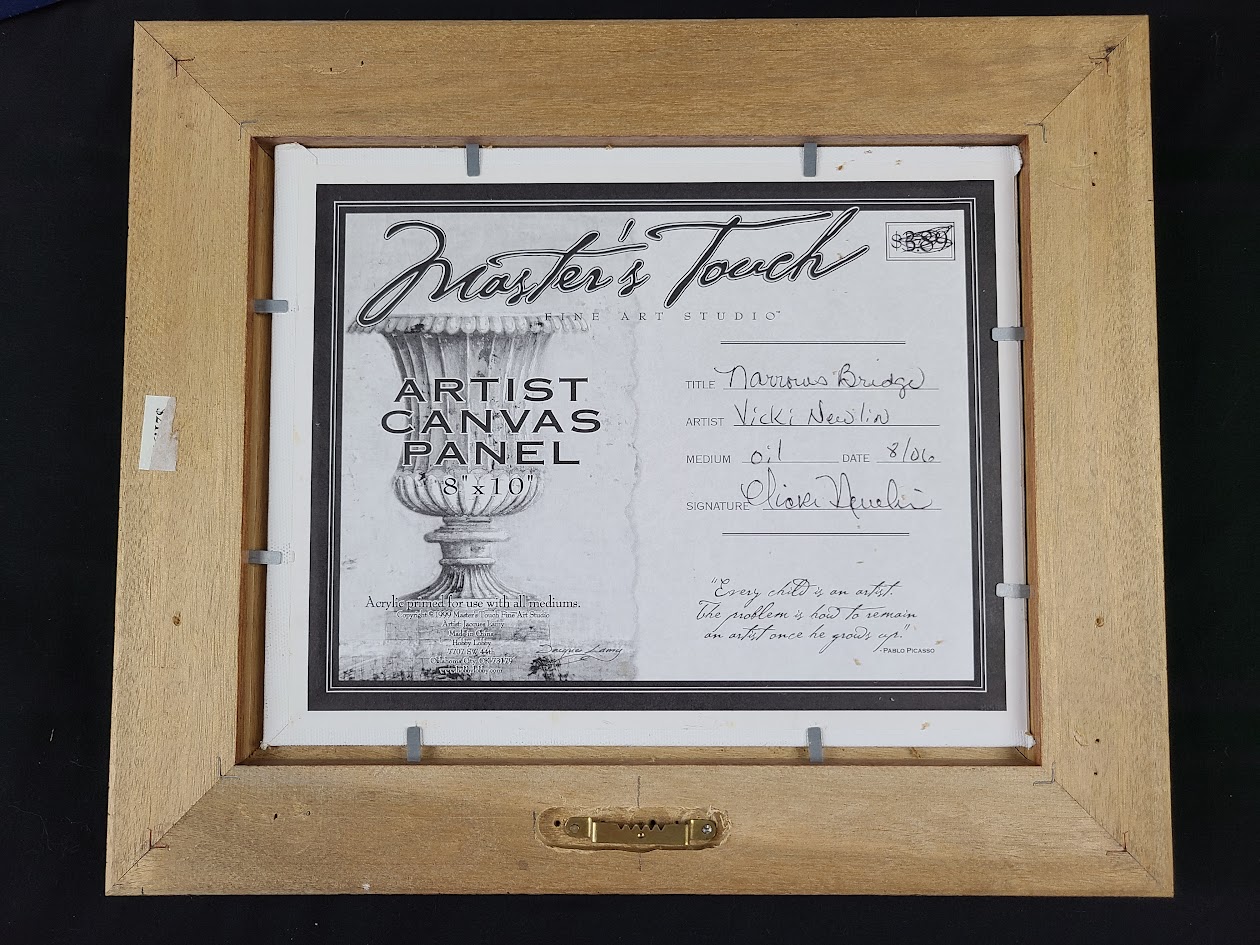 Master's Touch
FINE ART STUDIO™
ARTIST
CANVAS
PANEL
8" x 10"
Acrylic primed for use with all mediums.
Copyright ©1999 Master's Touch Fine Art Studio
Artist: Jacques Lamy
Made in China
Hobby Lobby
7707 SW 44th
Oklahoma City, OK 73179
www.hobbylobby.com
Jacques Lamy
$3.89
TITLE Narrows Bridge
ARTIST Vicki Newlin
MEDIUM oil DATE 8/06
SIGNATURE Vicki Newlin
"Every child is an artist.
The problem is how to remain
an artist once he grows up."
- PABLO PICASSO